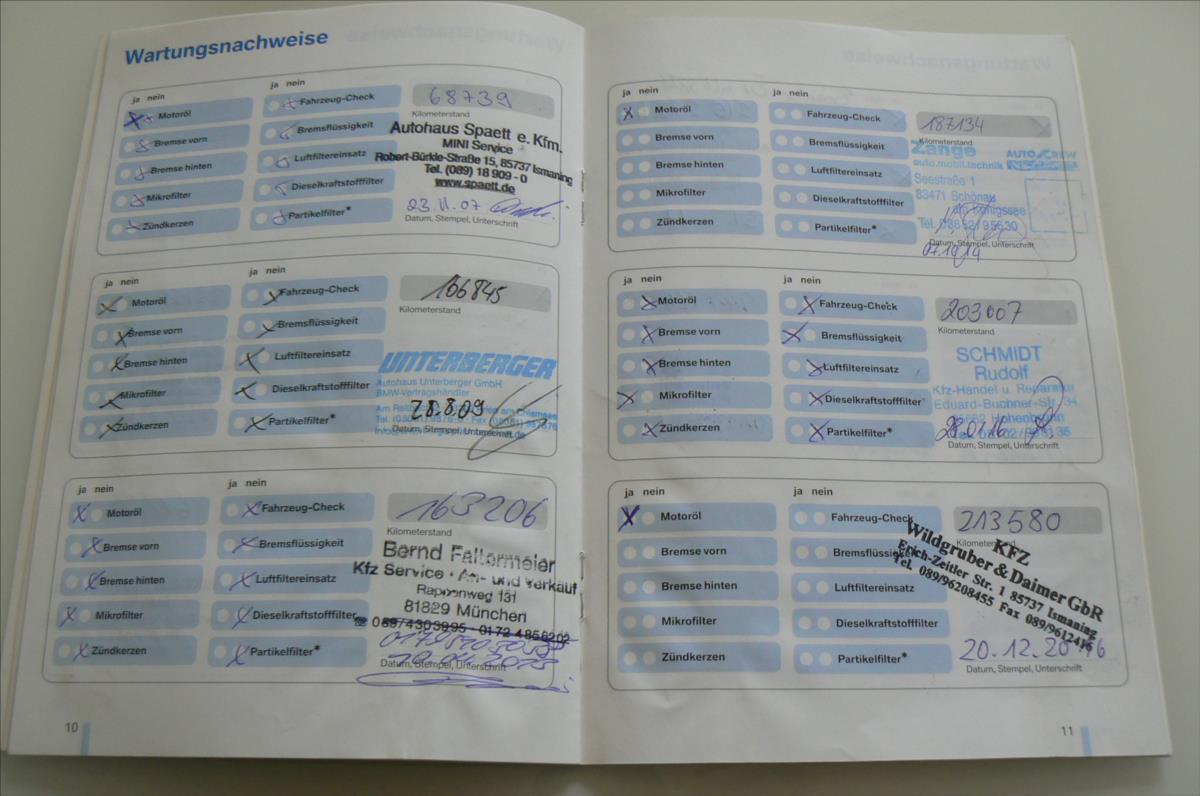 Wartungsnachweise
ja nein
ja nein
Motoröl
Bremse vorn
Bremse hinten
Mikrofilter
Zündkerzen
Fahrzeug-Check
Bremsflüssigkeit
Luftfiltereinsatz
Dieselkraftstofffilter
Partikelfilter*
68739
Kilometerstand
Autohaus Spaett e. Kfm.
MINI Service
Robert-Bürkle-Straße 15, 85737 Ismaning
Tel. (089) 18 909 - 0
www.spaett.de
23.11.07
Datum, Stempel, Unterschrift
ja nein
ja nein
Motoröl
Bremse vorn
Bremse hinten
Mikrofilter
Zündkerzen
Fahrzeug-Check
Bremsflüssigkeit
Luftfiltereinsatz
Dieselkraftstofffilter
Partikelfilter*
106845
Kilometerstand
UNTERBERGER
Autohaus Unterberger GmbH
BMW-Vertragshändler
28.8.09
Datum, Stempel, Unterschrift
ja nein
ja nein
Motoröl
Bremse vorn
Bremse hinten
Mikrofilter
Zündkerzen
Fahrzeug-Check
Bremsflüssigkeit
Luftfiltereinsatz
Dieselkraftstofffilter
Partikelfilter*
163206
Kilometerstand
Bernd Faltermeier
Kfz Service · An- und Verkauf
Rappenweg 131
81829 München
089/4303995 - 0172 4856202
Datum, Stempel, Unterschrift
10
ja nein
ja nein
Motoröl
Bremse vorn
Bremse hinten
Mikrofilter
Zündkerzen
Fahrzeug-Check
Bremsflüssigkeit
Luftfiltereinsatz
Dieselkraftstofffilter
Partikelfilter*
187134
Kilometerstand
Zange
auto.mobil.technik
AUTO CREW
Seestraße 1
83471 Schönau
am Königssee
Tel. 08652/95630
Datum, Stempel, Unterschrift
07.10.14
ja nein
ja nein
Motoröl
Bremse vorn
Bremse hinten
Mikrofilter
Zündkerzen
Fahrzeug-Check
Bremsflüssigkeit
Luftfiltereinsatz
Dieselkraftstofffilter
Partikelfilter*
203007
Kilometerstand
SCHMIDT
Rudolf
Kfz-Handel u. Reparatur
Eduard-Buchner-Str. 34
Hohenbrunn
28.01.16
Datum, Stempel, Unterschrift
ja nein
ja nein
Motoröl
Bremse vorn
Bremse hinten
Mikrofilter
Zündkerzen
Fahrzeug-Check
Bremsflüssigkeit
Luftfiltereinsatz
Dieselkraftstofffilter
Partikelfilter*
213580
Kilometerstand
KFZ
Wildgruber & Daimer GbR
Erich-Zeitler Str. 1 85737 Ismaning
Tel. 089/96208455 Fax 089/9612416
20.12.2016
Datum, Stempel, Unterschrift
11